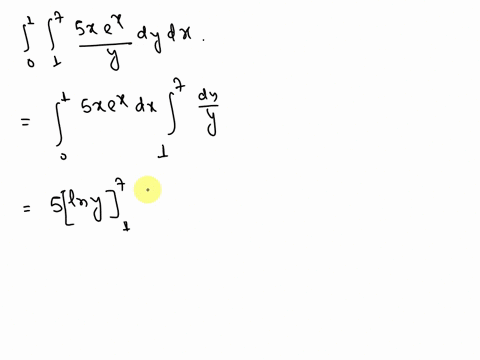 ∫₀¹ ∫₁⁷ 5xeˣ/y dy dx .
= ∫₀¹ 5xeˣ dx ∫₁⁷ dy/y
= 5[ln y]₁⁷